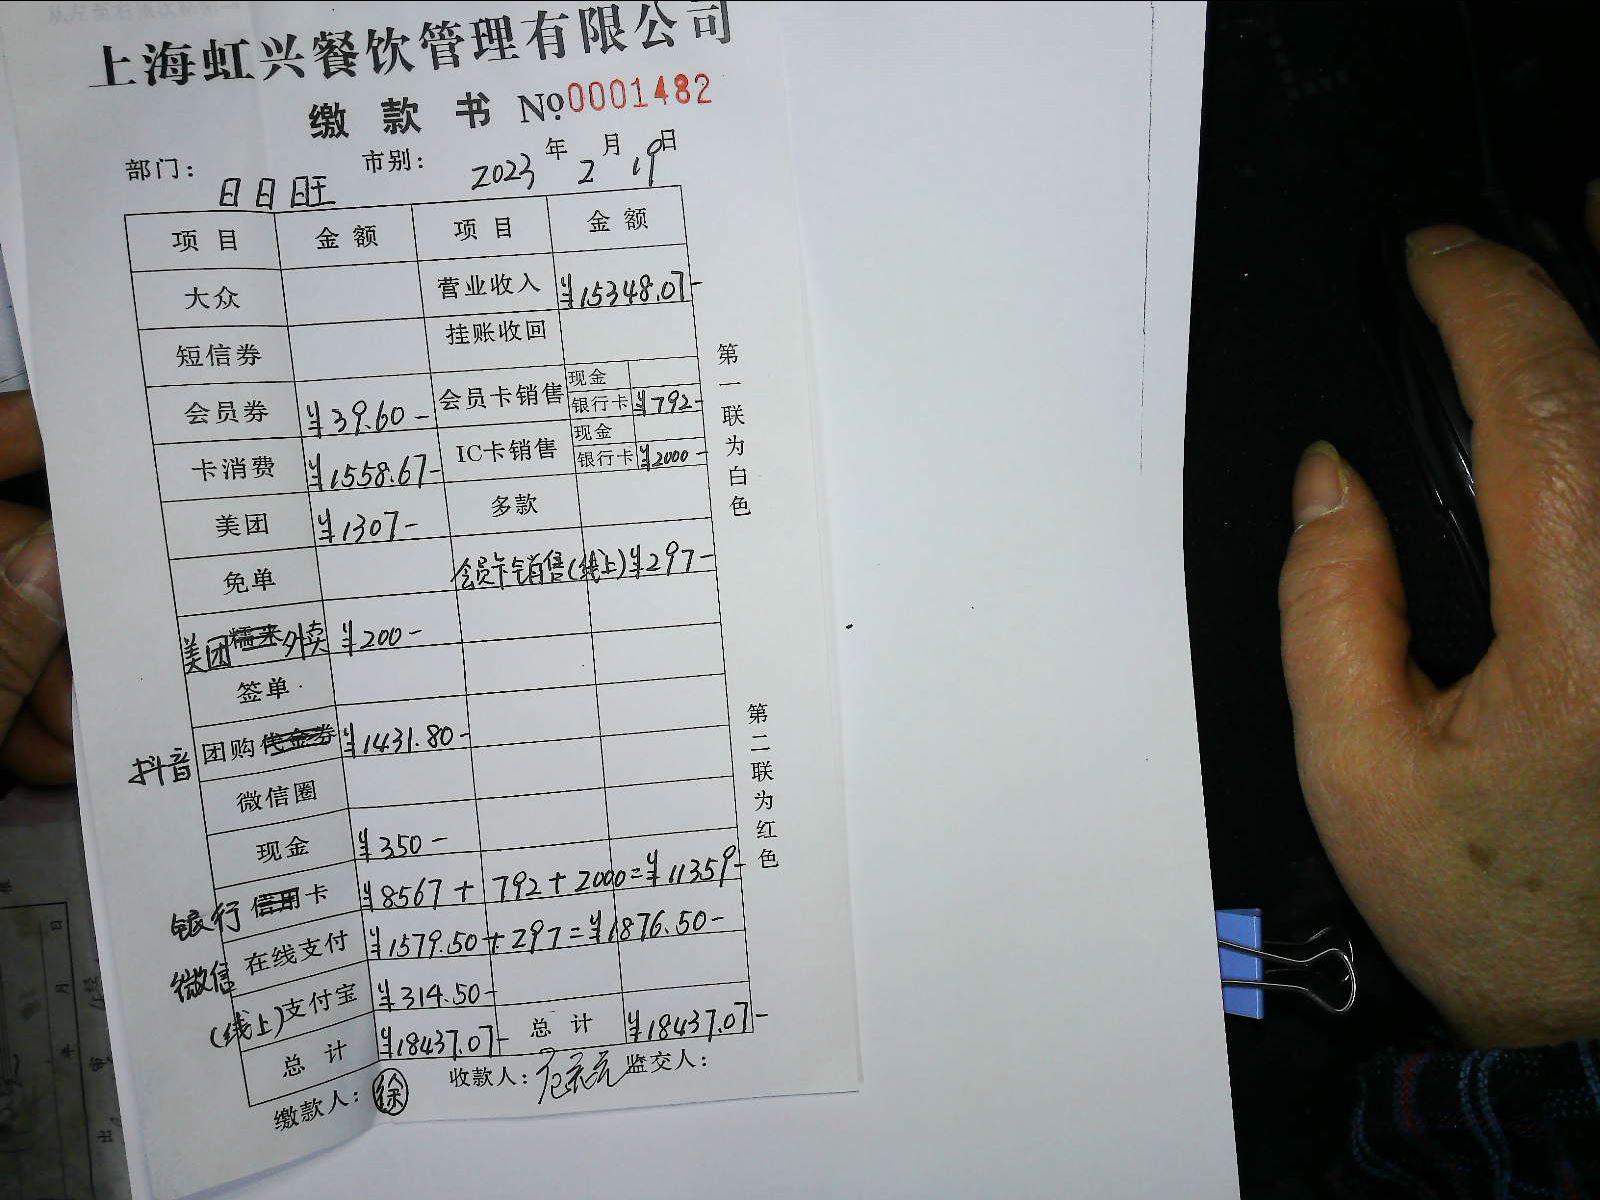 上海虹兴餐饮管理有限公司
缴款书 No 0001482
部门: 日日旺 市别: 2023年2月19日
项目 金额 项目 金额
大众 营业收入 ¥15348.07-
短信券 挂账收回
会员券 ¥39.60- 会员卡销售 现金
银行卡 ¥792-
卡消费 ¥1558.67- IC卡销售 现金
银行卡 ¥2000-
美团 ¥1307- 多款
免单 会员卡销售(线上) ¥297-
美团糯米外卖 ¥200-
签单
抖音 团购代金券 ¥1431.80-
微信圈
现金 ¥350-
银行 信用卡 ¥8567 + 792 + 2000 = ¥11359-
微信 在线支付 ¥1579.50 + 297 = ¥1876.50-
(线上)支付宝 ¥314.50-
总计 ¥18437.07- 总计 ¥18437.07-
缴款人: 徐 收款人: 监交人:
第一联为白色
第二联为红色